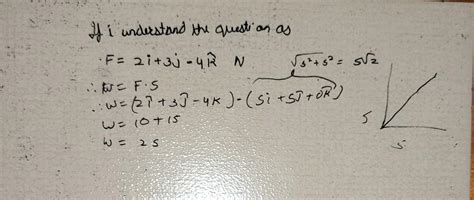 If i understand the question as
F = 2i + 3j - 4k̂ N √5²+5² = 5√2
∴ W = F·S
∴ W = (2î + 3ĵ - 4k) - (5i + 5j + 0k̂)
W = 10 + 15
W = 25
5
5